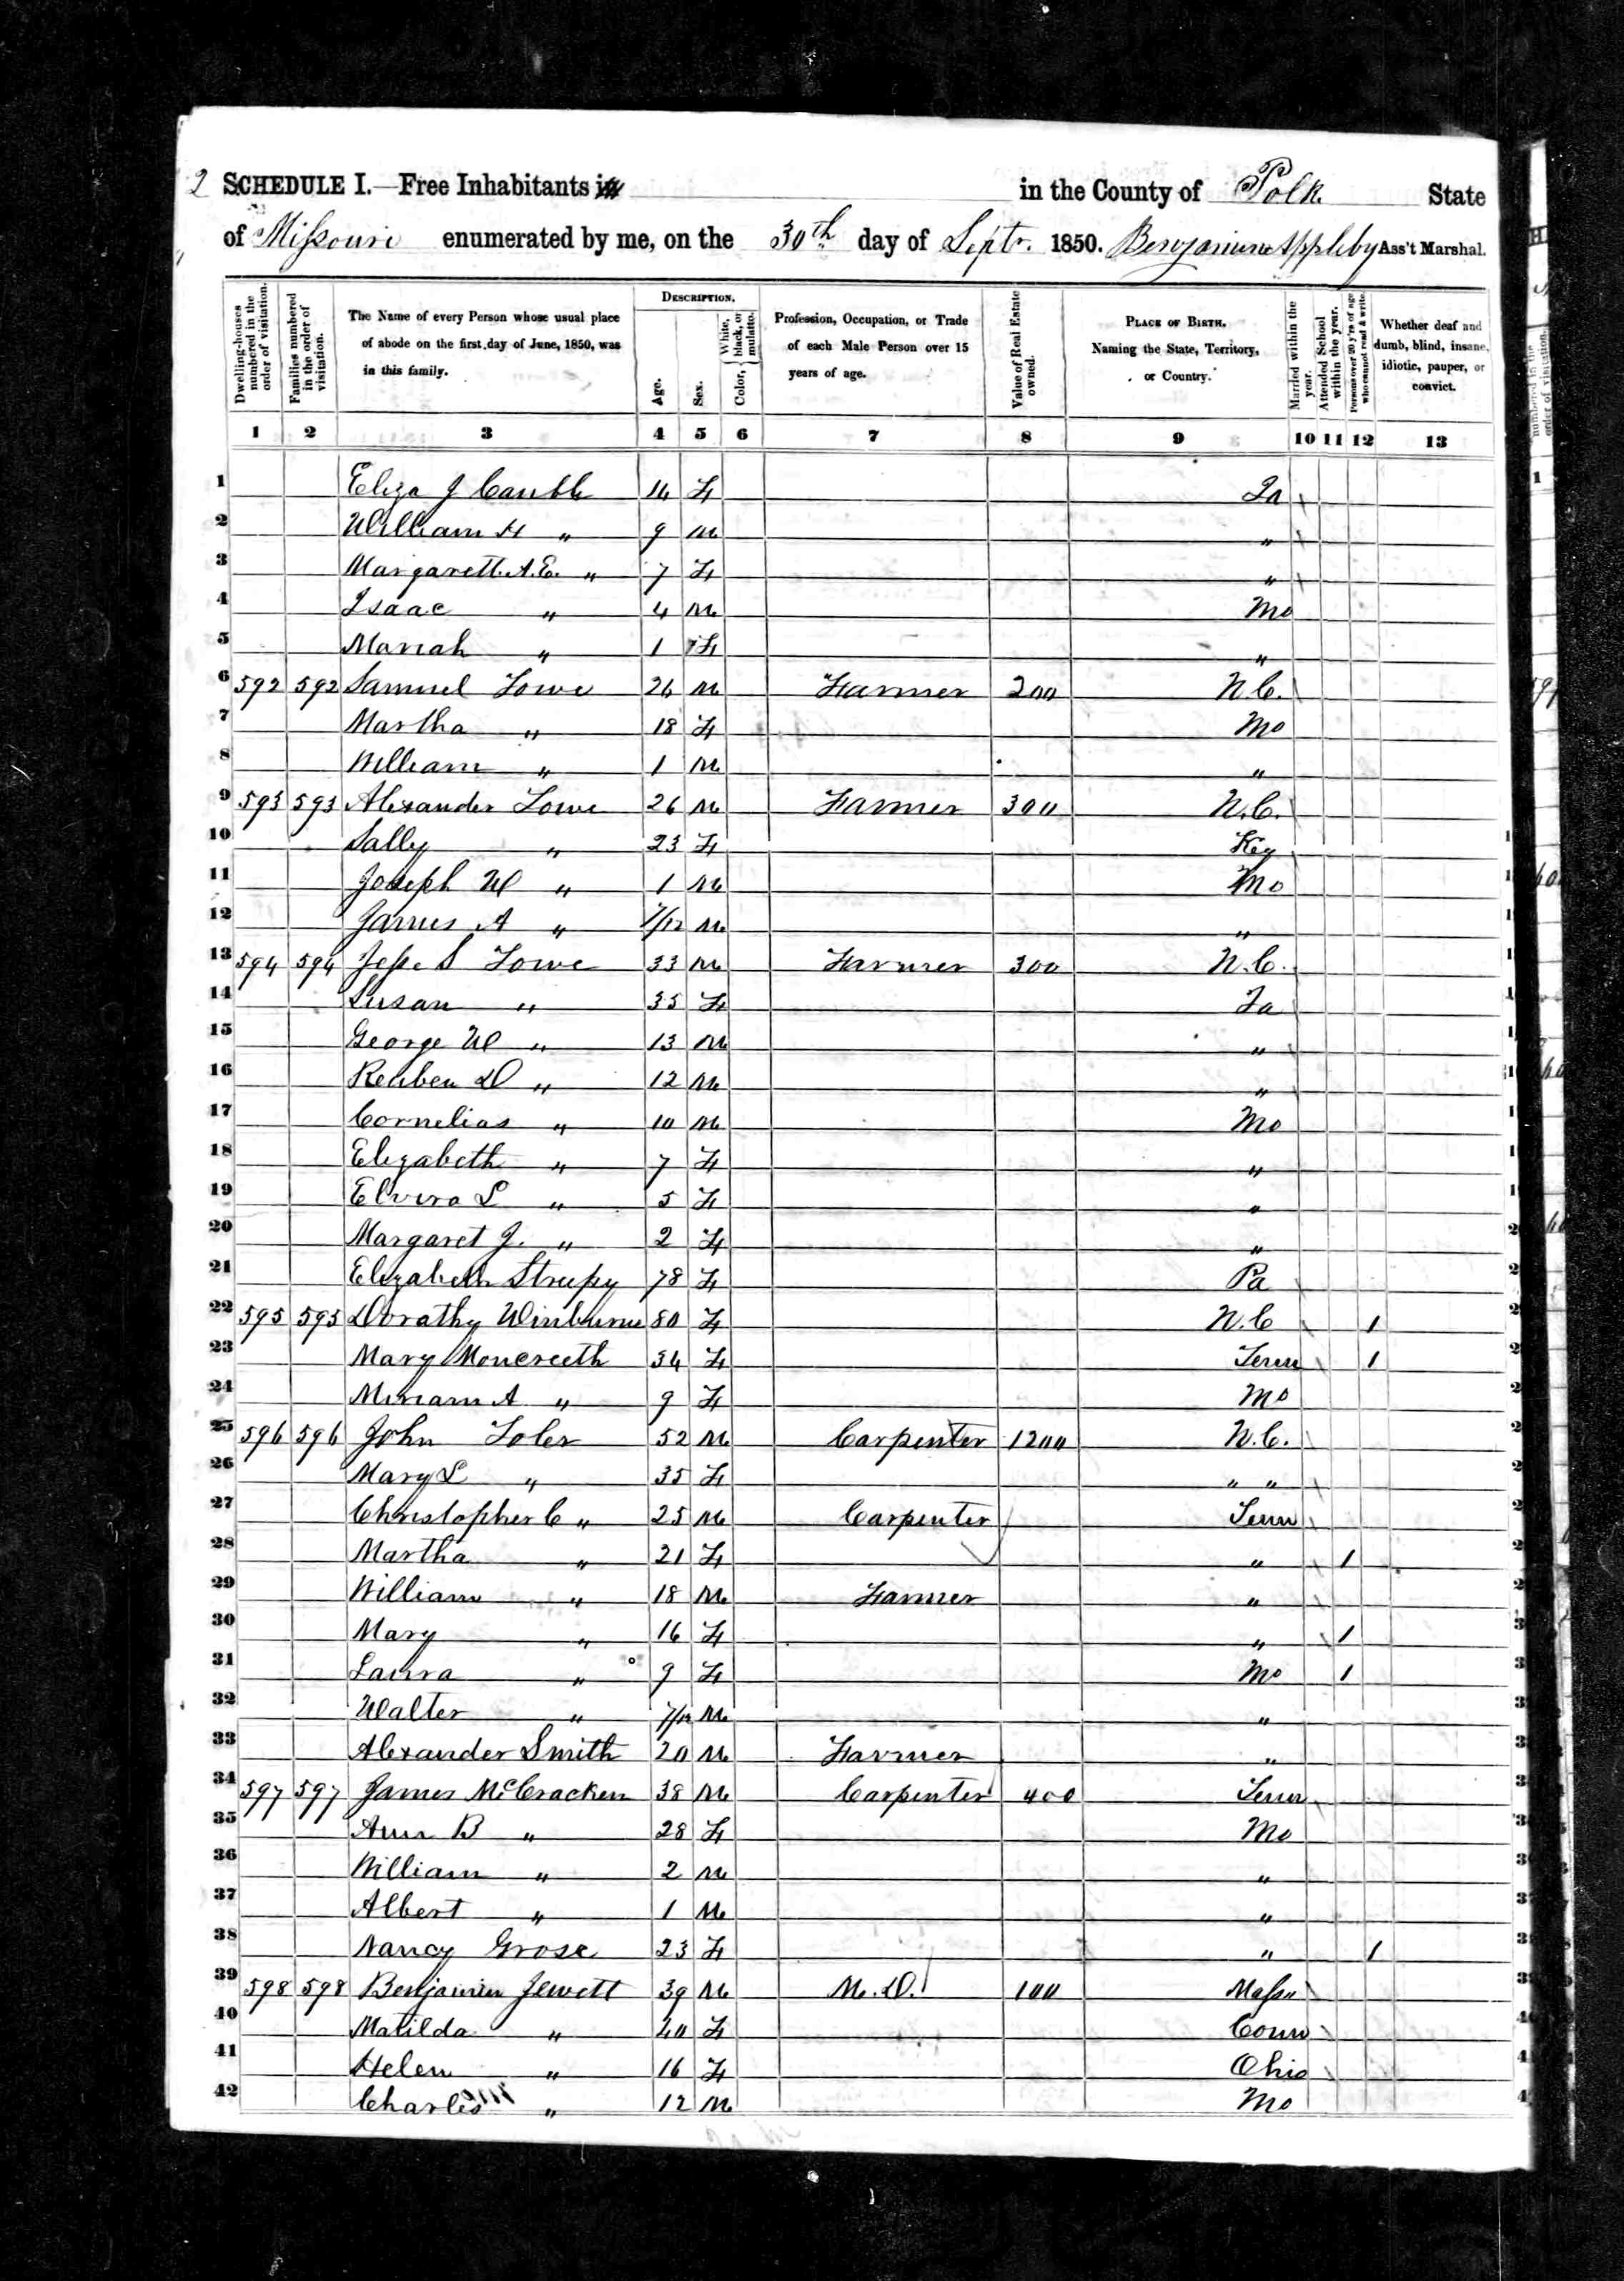 2 SCHEDULE I.—Free Inhabitants in in the County of Polk State
of Missouri enumerated by me, on the 30th day of Septr. 1850. Benjamin Appleby Ass't Marshal.
Dwelling-houses numbered in the order of visitation.
Families numbered in the order of visitation.
The Name of every Person whose usual place of abode on the first day of June, 1850, was in this family.
DESCRIPTION.
Age.
Sex.
Color, White, black, or mulatto.
Profession, Occupation, or Trade of each Male Person over 15 years of age.
Value of Real Estate owned.
PLACE OF BIRTH. Naming the State, Territory, or Country.
Married within the year.
Attended School within the year.
Persons over 20 y'rs of age who cannot read & write.
Whether deaf and dumb, blind, insane, idiotic, pauper, or convict.
1 2 3 4 5 6 7 8 9 10 11 12 13
1 Eliza J Cauble 14 F
2 William H " 9 M "
3 Margarett A.E. " 7 F "
4 Isaac " 4 M Mo
5 Mariah " 1 F "
6 592 592 Samuel Lowe 26 M Farmer 200 N.C.
7 Martha " 18 F Mo
8 William " 1 M "
9 593 593 Alexander Lowe 26 M Farmer 300 N.C.
10 Sally " 23 F Ky
11 Joseph W " 1 M Mo
12 James A " 1/12 M "
13 594 594 Jesse S Lowe 33 M Farmer 300 N.C.
14 Susan " 35 F
15 George W " 13 M "
16 Reuben D " 12 M "
17 Cornelias " 10 M Mo
18 Elizabeth " 7 F "
19 Elvira L " 5 F "
20 Margaret J. " 2 F "
21 Elizabeth Strupy 78 F Pa
22 595 595 Dorathy Winburne 80 F N.C 1
23 Mary Moncreeth 34 F Tenn 1
24 Miriam A " 9 F Mo
25 596 596 John Toler 52 M Carpenter 1200 N.C.
26 Mary L " 35 F " "
27 Christopher C " 25 M Carpenter Tenn
28 Martha " 21 F " 1
29 William " 18 M Farmer "
30 Mary " 16 F " 1
31 Laura " 9 F Mo 1
32 Walter " 7/12 M "
33 Alexander Smith 20 M Farmer "
34 597 597 James McCracken 38 M Carpenter 400 Tenn
35 Ann B " 28 F Mo
36 William " 2 M "
37 Albert " 1 M "
38 Nancy Grose 23 F " 1
39 598 598 Benjamin Jewett 39 M M.D. 100 Mass
40 Matilda " 40 F Conn
41 Helen " 16 F Ohio
42 Charles " 12 M Mo